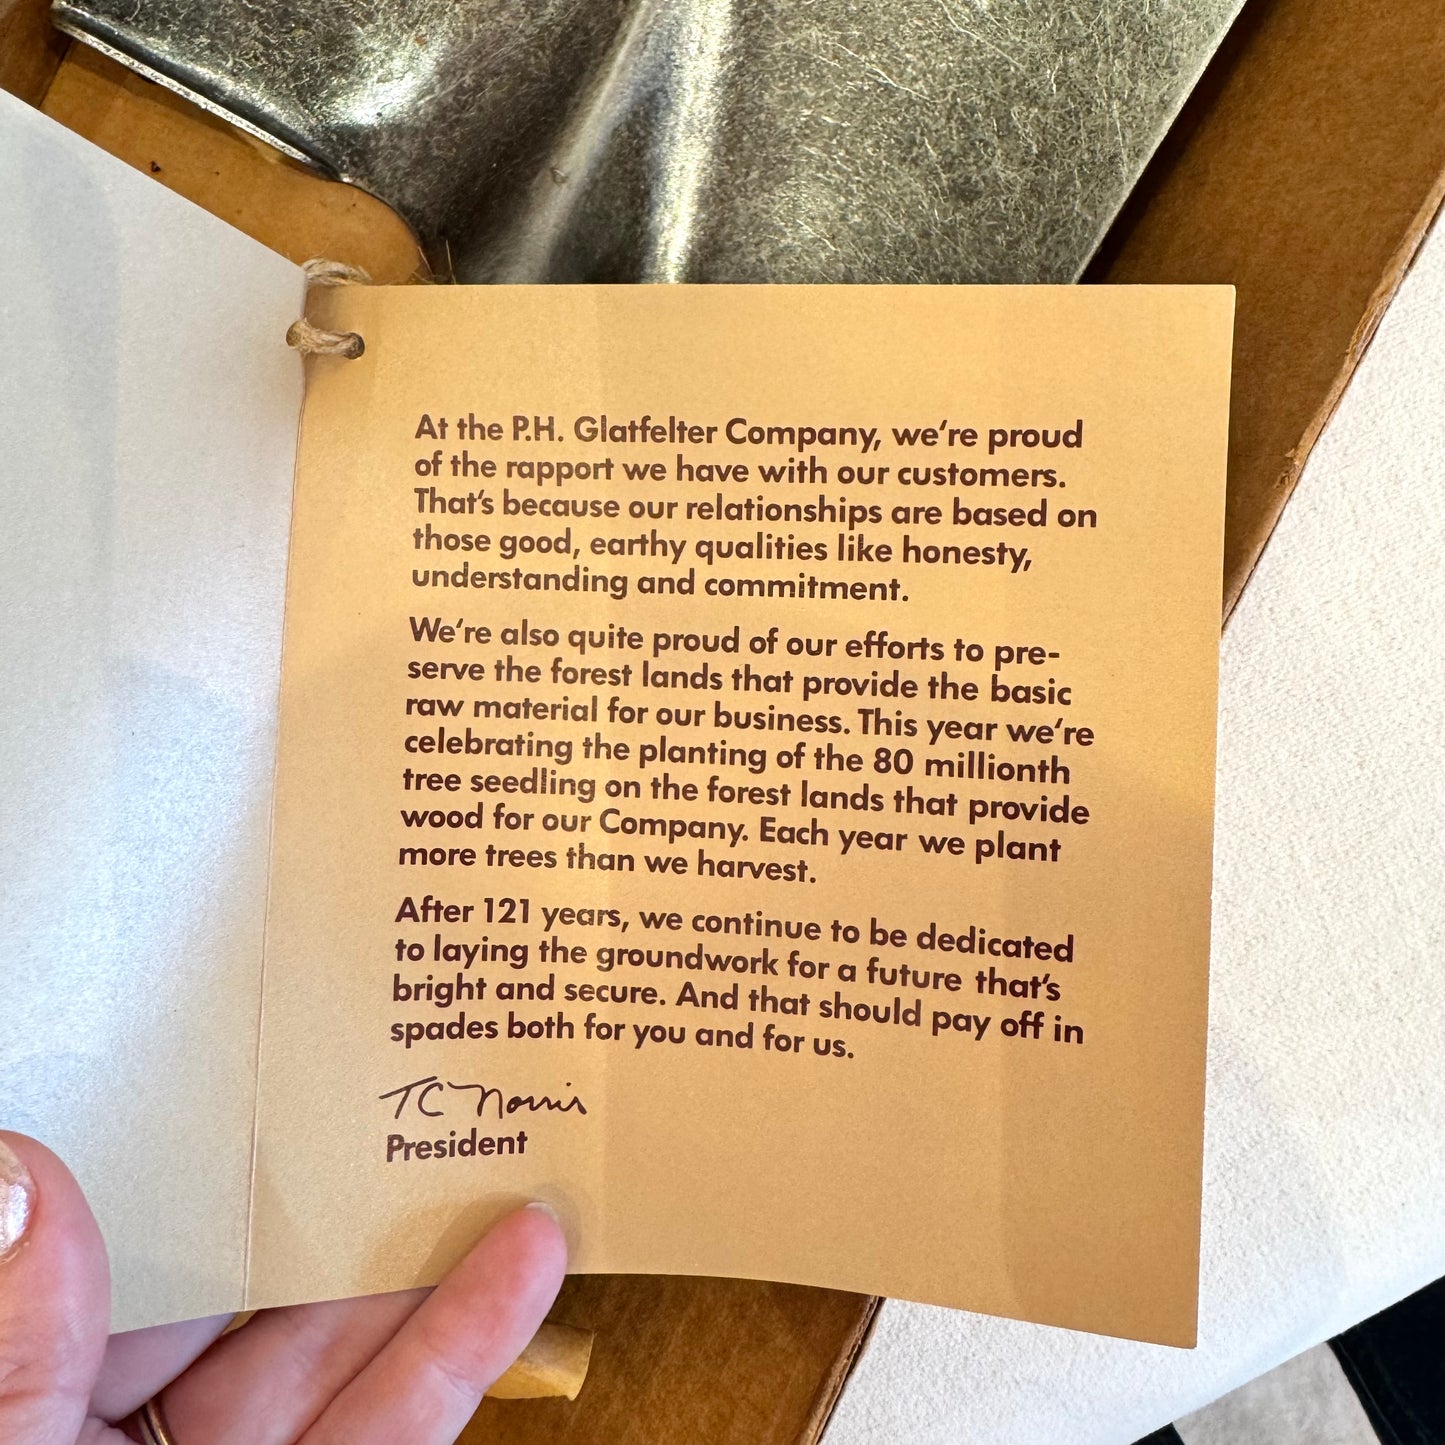 At the P.H. Glatfelter Company, we're proud
of the rapport we have with our customers.
That's because our relationships are based on
those good, earthy qualities like honesty,
understanding and commitment.
We're also quite proud of our efforts to pre-
serve the forest lands that provide the basic
raw material for our business. This year we're
celebrating the planting of the 80 millionth
tree seedling on the forest lands that provide
wood for our Company. Each year we plant
more trees than we harvest.
After 121 years, we continue to be dedicated
to laying the groundwork for a future that's
bright and secure. And that should pay off in
spades both for you and for us.
TC Norris
President